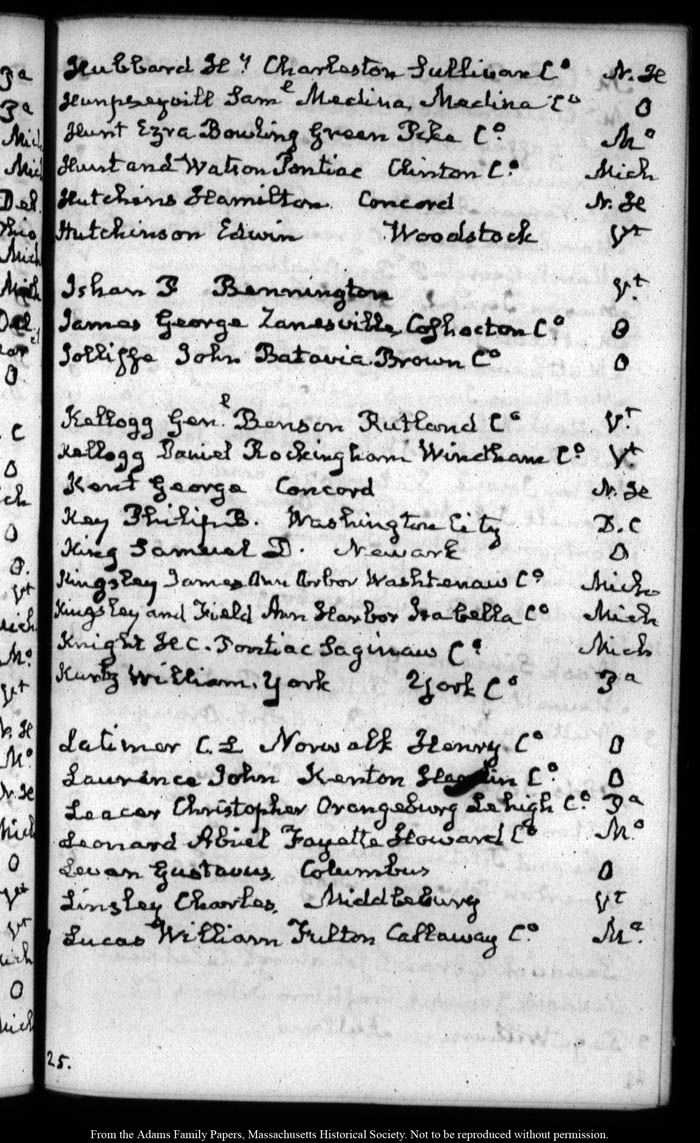 Hubbard Hy Charleston Sullivan Co N. He
Humpseyvill Saml Medina, Medina Co O
Hunt Ezra Bowling Green Pike Co. Mo
Hunt and Watson Pontiac Clinton Co. Mich
Hutchins Hamilton. Concord N. He
Hutchinson Edwin Woodstock Vt
Isham P Bennington Vt.
James George Zanesville, Coshocton Co O
Jolliffe John Batavia. Brown Co O
Kellogg Genl. Benson Rutland Co Vt.
Kellogg Daniel Rockingham Windham Co. Vt.
Kent George Concord N. He
Key Philip B. Washington City D. C
King Samuel D. Newark O
Kingsley James Ann Arbor Washtenaw Co. Mich
Kingsley and Field Ann Harbor Isabella Co Mich
Knight H C. Pontiac Saginaw Co. Mich
Kurtz William. York York Co Pa
Latimer C. L Norwalk Henry. Co O
Laurence John Kenton Co. O
Christopher Orangeburg Lehigh Co. Pa
Leonard Abiel Fayette Howard Co Mo
Levan Gustavus. Columbus O
Linsley Charles. Middlebury Vt
Lucas William Fulton Callaway Co. Mo.
25.
From the Adams Family Papers, Massachusetts Historical Society. Not to be reproduced without permission.